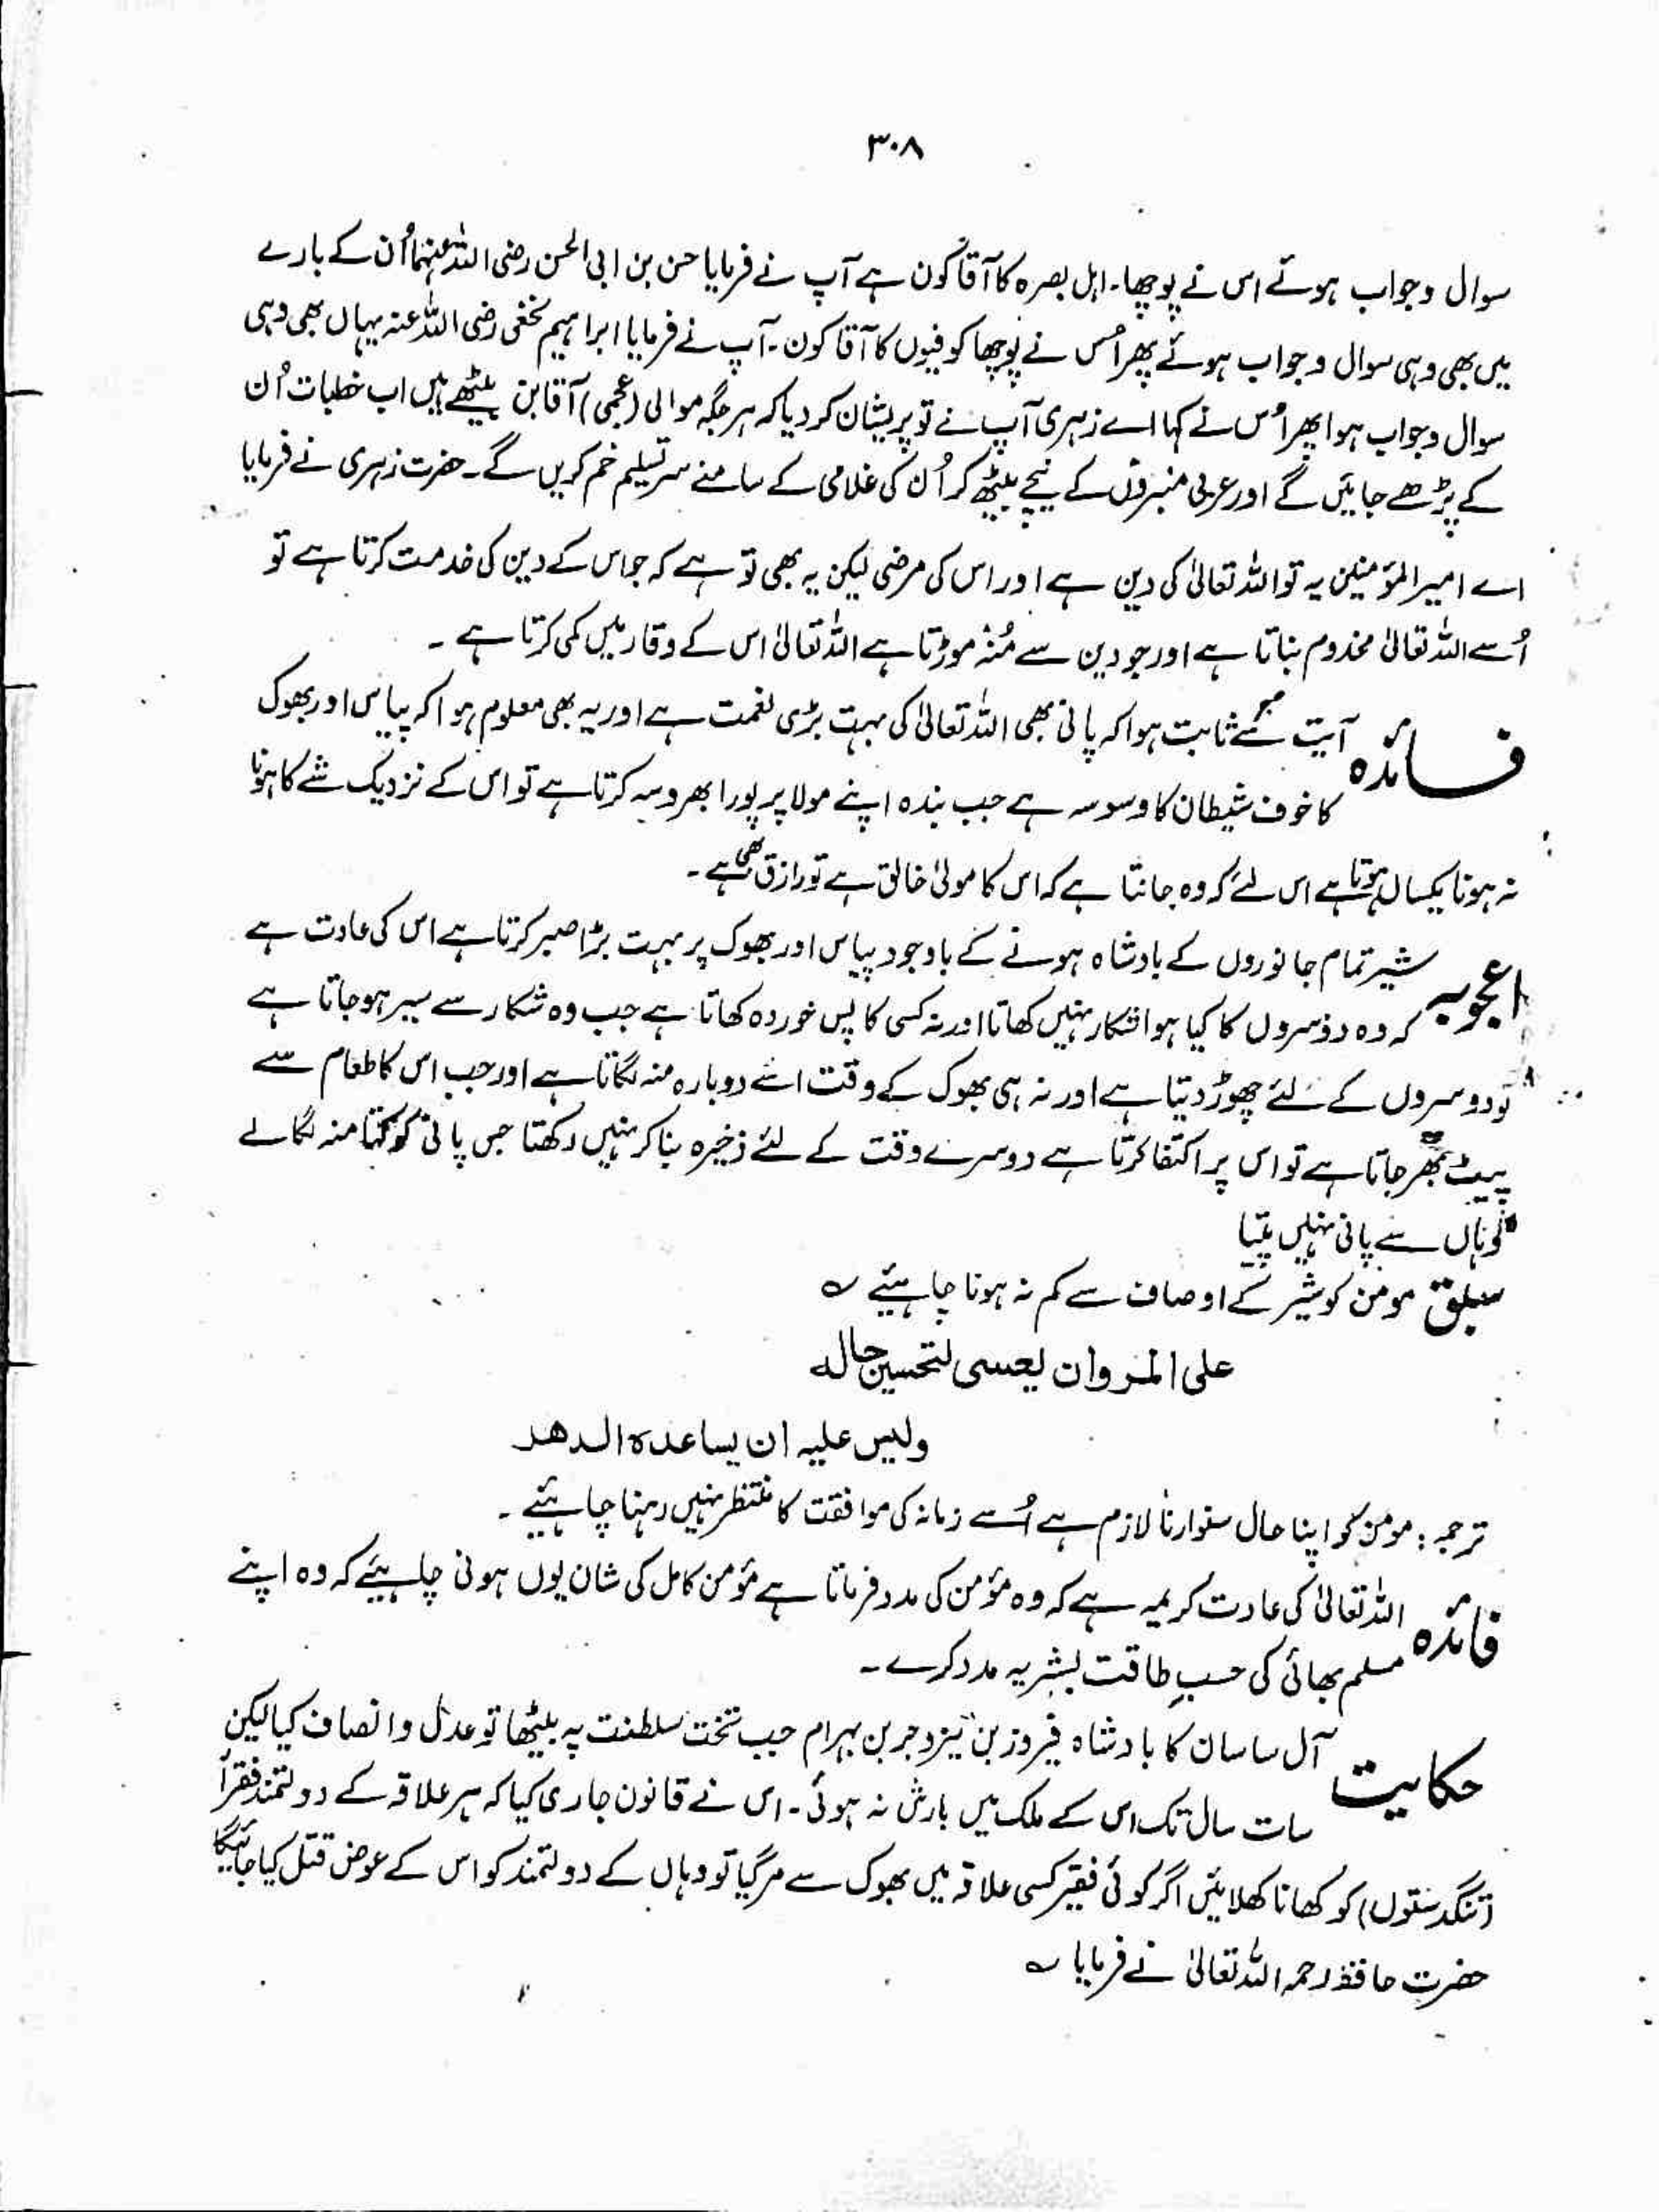 ۳۰۸
سوال و جواب ہوئے اس نے پوچھا۔ اہل بصرہ کا آقا کون ہے آپ نے فرمایا حسن بن ابی الحسن رضی اللہ عنہما اُن کے بارے
میں بھی وہی سوال و جواب ہوئے پھر اُس نے پوچھا کوفیوں کا آقا کون۔ آپ نے فرمایا ابراہیم نخعی رضی اللہ عنہ یہاں بھی وہی
سوال و جواب ہوا پھر اُس نے کہا اے زہری آپ نے تو پریشان کر دیا کہ ہر جگہ موالی (عجمی) آقا بن بیٹھے ہیں اب خطبات اُن
کے پڑھے جائیں گے اور عربی منبروں کے نیچے بیٹھ کر اُن کی غلامی کے سامنے سر تسلیم خم کریں گے۔ حضرت زہری نے فرمایا
اے امیر المؤمنین یہ تو اللہ تعالیٰ کی دین ہے اور اس کی مرضی لیکن یہ بھی تو ہے کہ جو اس کے دین کی خدمت کرتا ہے تو
اُسے اللہ تعالیٰ مخدوم بناتا ہے اور جو دین سے مُنہ موڑتا ہے اللہ تعالیٰ اس کے وقار میں کمی کرتا ہے ۔
فائدہ آیت سے ثابت ہوا کہ پانی بھی اللہ تعالیٰ کی بہت بڑی نعمت ہے اور یہ بھی معلوم ہوا کہ پیاس اور بھوک
کا خوف شیطان کا وسوسہ ہے جب بندہ اپنے مولا پر پورا بھروسہ کرتا ہے تو اس کے نزدیک شے کا ہونا
نہ ہونا یکساں ہوتا ہے اس لئے کہ وہ جانتا ہے کہ اس کا مولیٰ خالق ہے تو رازق بھی ہے ۔
اعجوبہ شیر تمام جانوروں کے بادشاہ ہونے کے باوجود پیاس اور بھوک پر بہت بڑا صبر کرتا ہے اس کی عادت ہے
کہ وہ دوسروں کا کیا ہوا شکار نہیں کھاتا اور نہ کسی کا پس خوردہ کھاتا ہے جب وہ شکار سے سیر ہو جاتا ہے
تو دوسروں کے لئے چھوڑ دیتا ہے اور نہ ہی بھوک کے وقت اسے دوبارہ منہ لگاتا ہے اور جب اس کا طعام سے
پیٹ بھر جاتا ہے تو اس پر اکتفا کرتا ہے دوسرے وقت کے لئے ذخیرہ بنا کر نہیں رکھتا جس پانی کو کتا منہ لگا لے
تو وہاں سے پانی نہیں پیتا
سبق مومن کو شیر کے اوصاف سے کم نہ ہونا چاہیئے ؎
علی المرٔ وان یعسی لتحسین حالہ
ولیس علیہ ان یساعدہ الدھر
ترجمہ : مومن کو اپنا حال سنوارنا لازم ہے اُسے زمانہ کی موافقت کا منتظر نہیں رہنا چاہیئے ۔
فائدہ اللہ تعالیٰ کی عادت کریمہ ہے کہ وہ مؤمن کی مدد فرماتا ہے مؤمن کامل کی شان یوں ہونی چاہیئے کہ وہ اپنے
مسلم بھائی کی حسبِ طاقت بشریہ مدد کرے ۔
حکایت آل ساسان کا بادشاہ فیروز بن یزدجر بن بہرام جب تخت سلطنت پہ بیٹھا تو عدل و انصاف کیا لیکن
سات سال تک اس کے ملک میں بارش نہ ہوئی ۔ اس نے قانون جاری کیا کہ ہر علاقہ کے دولتمند فقرأ
(تنگدستوں) کو کھانا کھلائیں اگر کوئی فقیر کسی علاقہ میں بھوک سے مر گیا تو وہاں کے دولتمند کو اس کے عوض قتل کیا جائیگا
حضرت حافظ رحمہ اللہ تعالیٰ نے فرمایا ؎